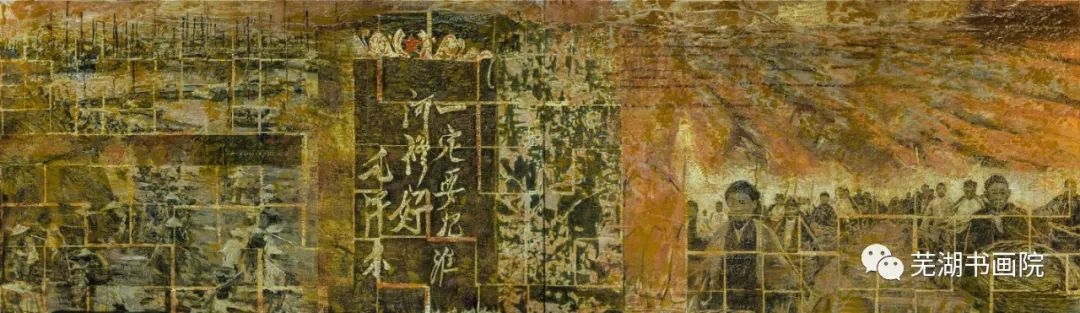 一定要把淮
河修好
毛泽东
芜湖书画院